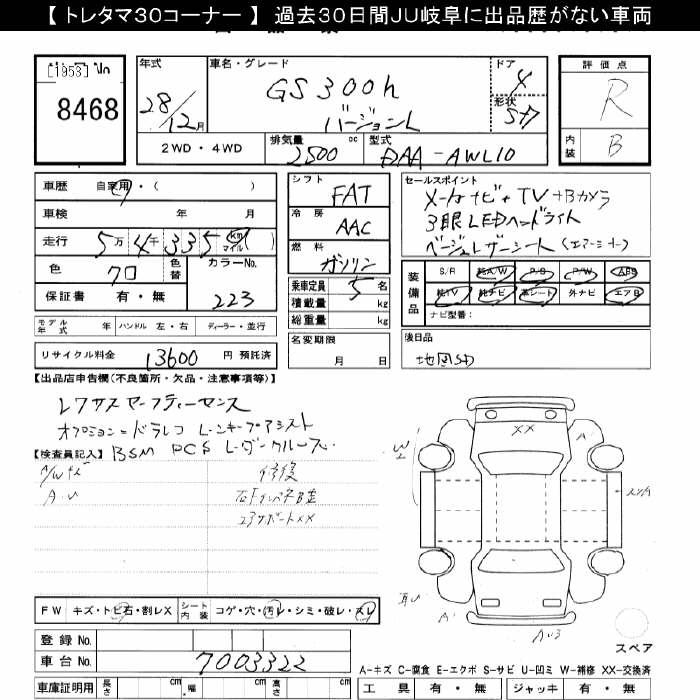 【 トレタマ30コーナー 】 過去30日間JU岐阜に出品歴がない車両
1953 No
8468
年式
28/12月
車名・グレード
GS300h
バージョンL
ドア
4
形状
SD
2WD・4WD
排気量 cc
2500
型式
DAA-AWL10
評価点
R
内装
B
車歴 自家用・( )
車検 年 月
走行 5万4千335 km マイル ( )
色 クロ 色替 カラーNo. 223
保証書 有・無
シフト FAT
冷房 AAC
燃料 ガソリン
乗車定員 5 名
積載量 kg
総重量 kg
セールスポイント
メーカナビ+TV+Bカメラ
3眼LEDヘッドライト
ベージュレザーシート (エアーシート)
装備品
S/R 純A/W P/S P/W ABS
純TV 純ナビ 革シート 外ナビ エアB
ナビ型番:
モデル年式 年 ハンドル 左・右 ディーラー・並行
リサイクル料金 13600 円 預託済
名変期限
月 日
後日品
地図SD
【出品店申告欄(不良箇所・欠品・注意事項等)】
レクサスセーフティーセンス
オプション=ドラレコ レーンキープアシスト
BSM PCS レーダークルーズ
【検査員記入】
A/Wキズ
A・U
修復
コアサポートXX
XX
A
W2
A
AU3
FW キズ・トビ石・割レX
シート内装 コゲ・穴・汚レ・シミ・破レ・スレ
登録 No.
車台 No. 7003322
車庫証明用 長さ cm 幅 cm 高さ cm
スペア
A-キズ C-腐食 E-エクボ S-サビ U-凹ミ W-補修 XX-交換済
工具 有・無 ジャッキ 有・無